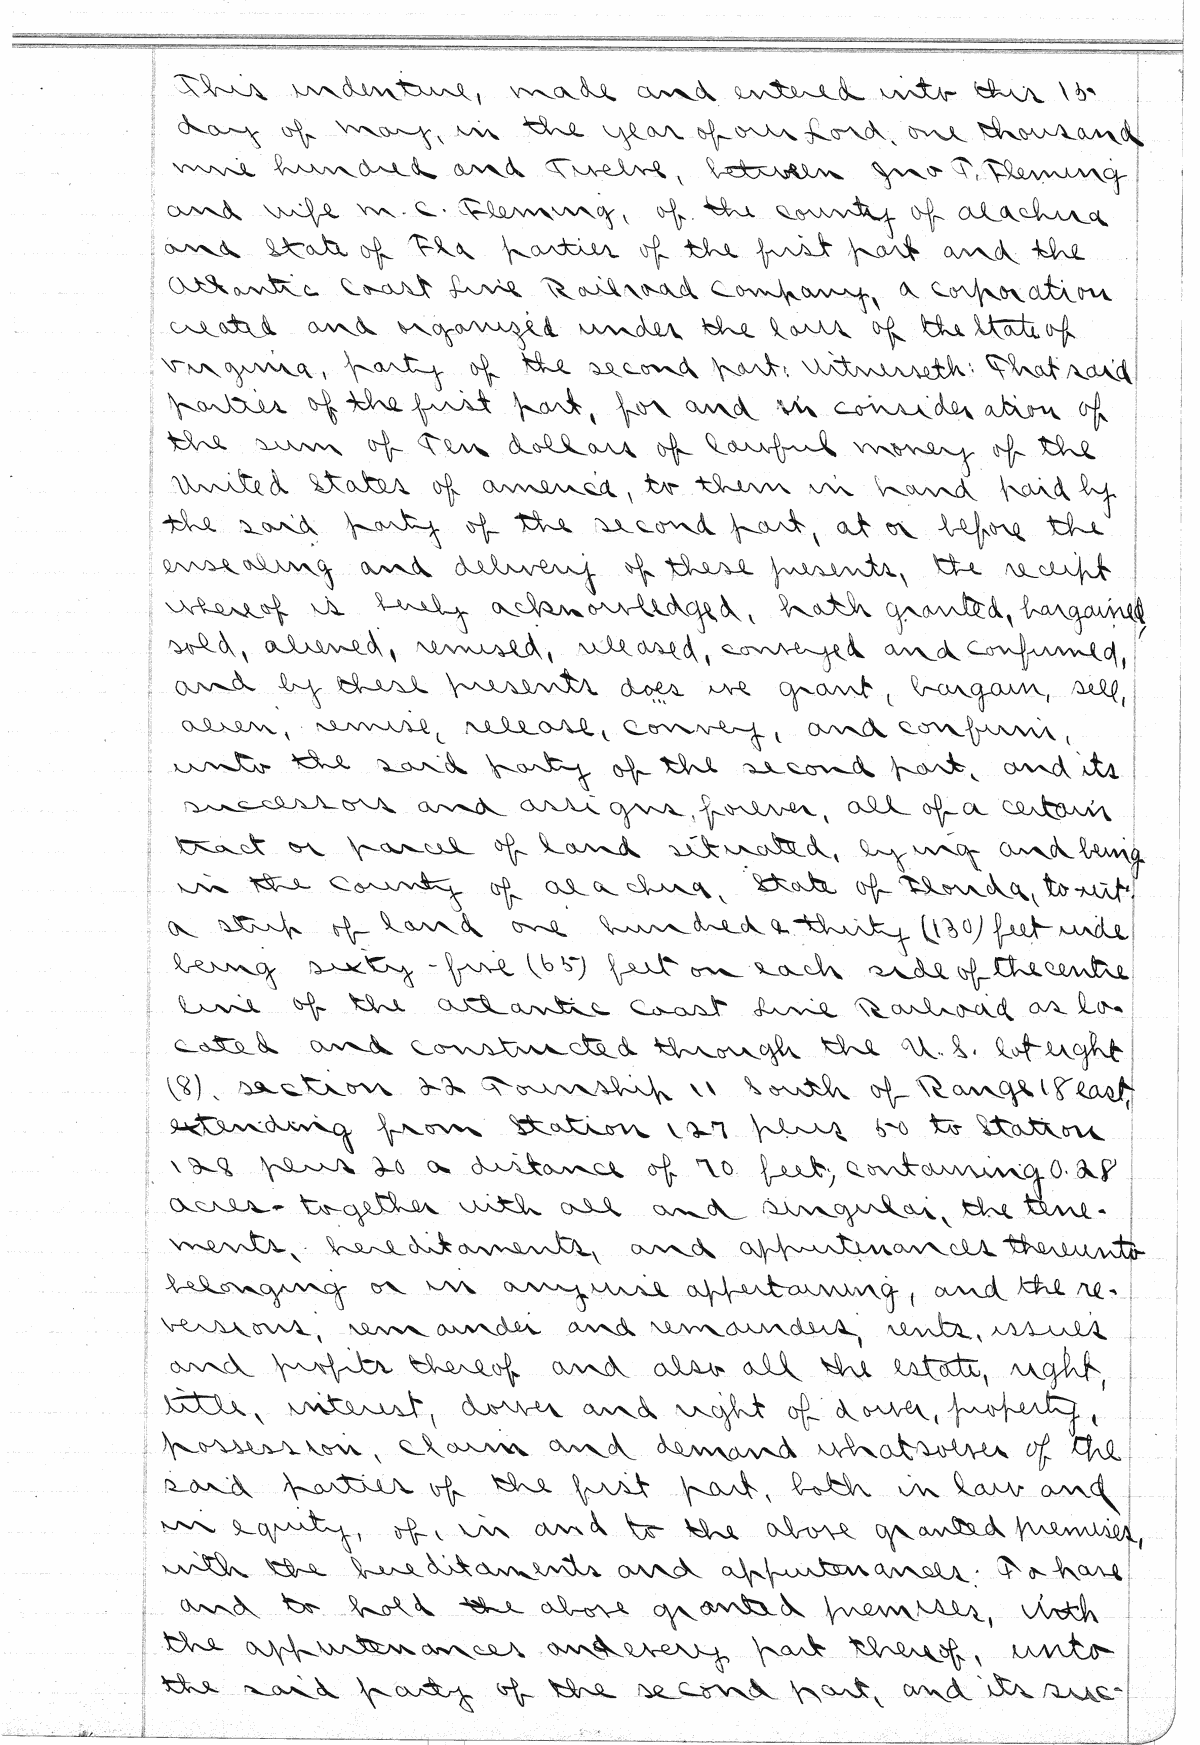 This indenture, made and entered into this 15"
day of may, in the year of our Lord, one thousand
nine hundred and Twelve, between Jno T. Fleming
and wife m. c. Fleming, of the county of alachua
and State of Fla parties of the first part and the
Atlantic Coast Line Railroad Company, a corporation
created and organized under the laws of the State of
Virginia, party of the second part: Witnesseth: That said
parties of the first part, for and in consideration of
the sum of Ten dollars of lawful money of the
United States of america, to them in hand paid by
the said party of the second part, at or before the
ensealing and delivery of these presents, the receipt
whereof is hereby acknowledged, hath granted, bargained,
sold, aliened, remised, released, conveyed and confirmed,
and by these presents does we grant, bargain, sell,
alien, remise, release, convey, and confirm,
unto the said party of the second part, and its
successors and assigns, forever, all of a certain
tract or parcel of land situated, lying and being
in the County of alachua, State of Florida, to-wit:
a strip of land one hundred & thirty (130) feet wide
being sixty-five (65) feet on each side of the centre
line of the atlantic Coast Line Railroad as lo-
cated and constructed through the U. S. lot eight
(8), section 22 Township 11 South of Range 18 east,
extending from Station 127 plus 50 to Station
128 plus 20 a distance of 70 feet, containing 0.28
acres- together with all and singular, the tene-
ments, hereditaments, and appurtenances thereunto
belonging or in anywise appertaining, and the re-
versions, remainder and remainders, rents, issues
and profits thereof and also all the estate, right,
title, interest, dower and right of dower, property,
possession, claim and demand whatsoever of the
said parties of the first part, both in law and
in equity, of, in and to the above granted premises,
with the hereditaments and appurtenances: To have
and to hold the above granted premises, with
the appurtenances and every part thereof, unto
the said party of the second part, and its suc-